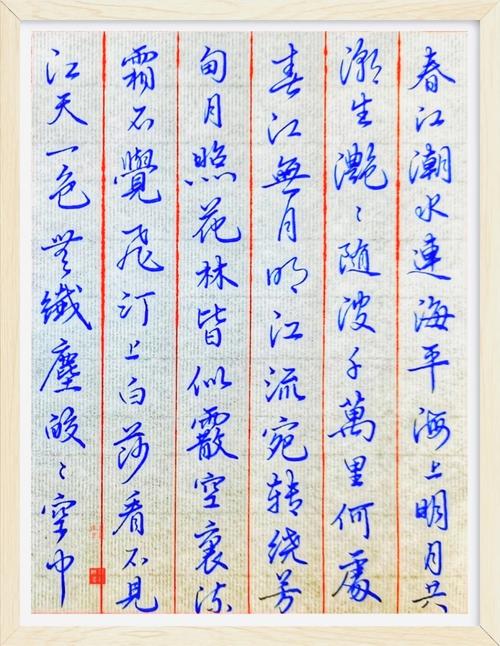 春江潮水連海平海上明月共
潮生灧〻随波千萬里何處
春江無月明江流宛转绕芳
甸月照花林皆似霰空裏流
霜不覺飛汀上白莎看不見
江天一色無纖塵皎〻空中